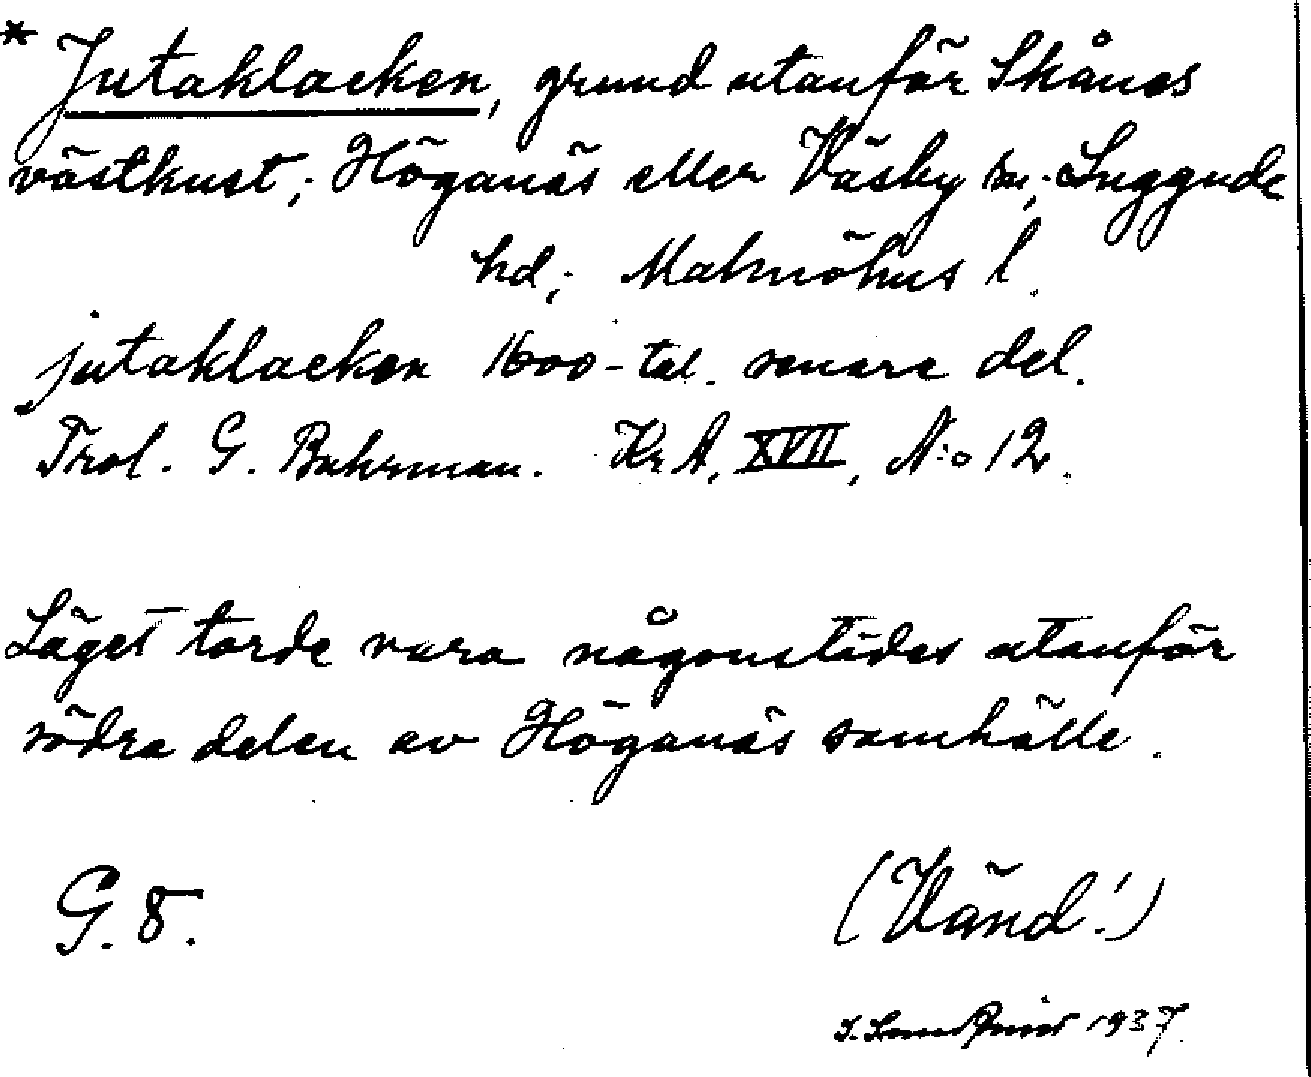 * Jutaklacken, grund utanför Skånes
västkust; Höganäs eller Väsby sn; Luggude
hd; Malmöhus l.
jutaklacken 1600-tal. senare del.
Trol. G. Buhrman. Kr A, XVII, N:o 12.
Läget torde vara någonstädes utanför
södra delen av Höganäs samhälle.
G. 8.
(Vänd!)
1937